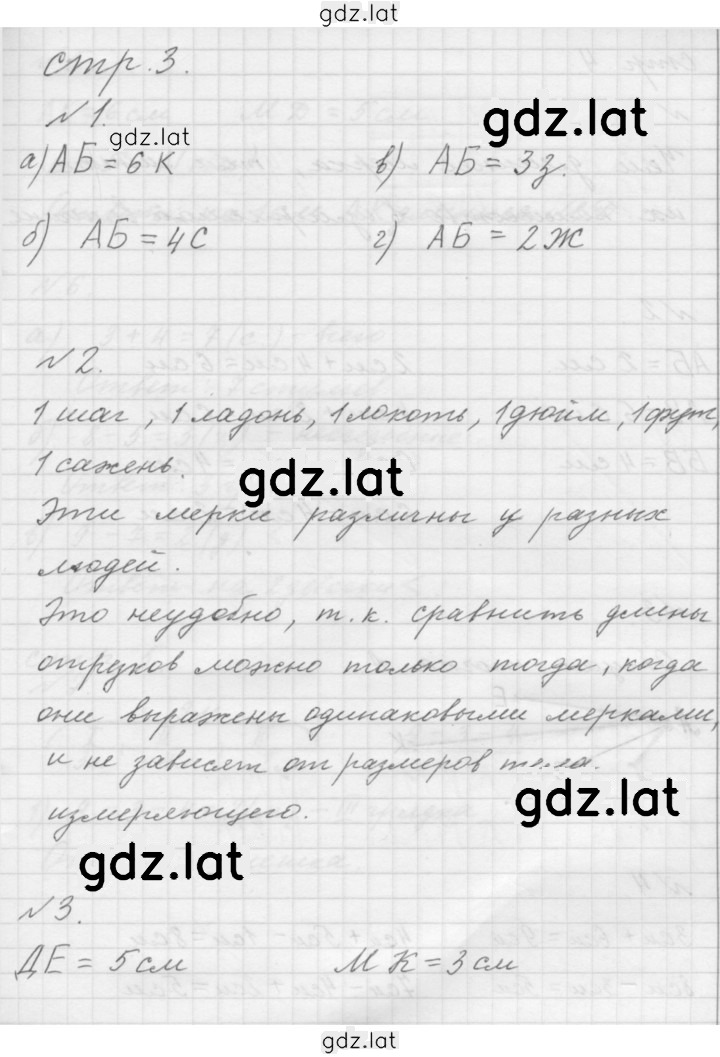 gdz.lat
стр. 3.
№1.
gdz.lat
gdz.lat
а) АБ = 6К в) АБ = 3з.
б) АБ = 4С г) АБ = 2Ж
№2.
1 шаг, 1 ладонь, 1 локоть, 1 дюйм, 1 фут,
1 сажень.
gdz.lat
Эти мерки различны у разных
людей.
Это неудобно, т.к. сравнить длины
отрезков можно только тогда, когда
они выражены одинаковыми мерками,
и не зависят от размеров тела.
gdz.lat
измеряющего.
gdz.lat
№3.
ДЕ = 5 см МК = 3 см
gdz.lat